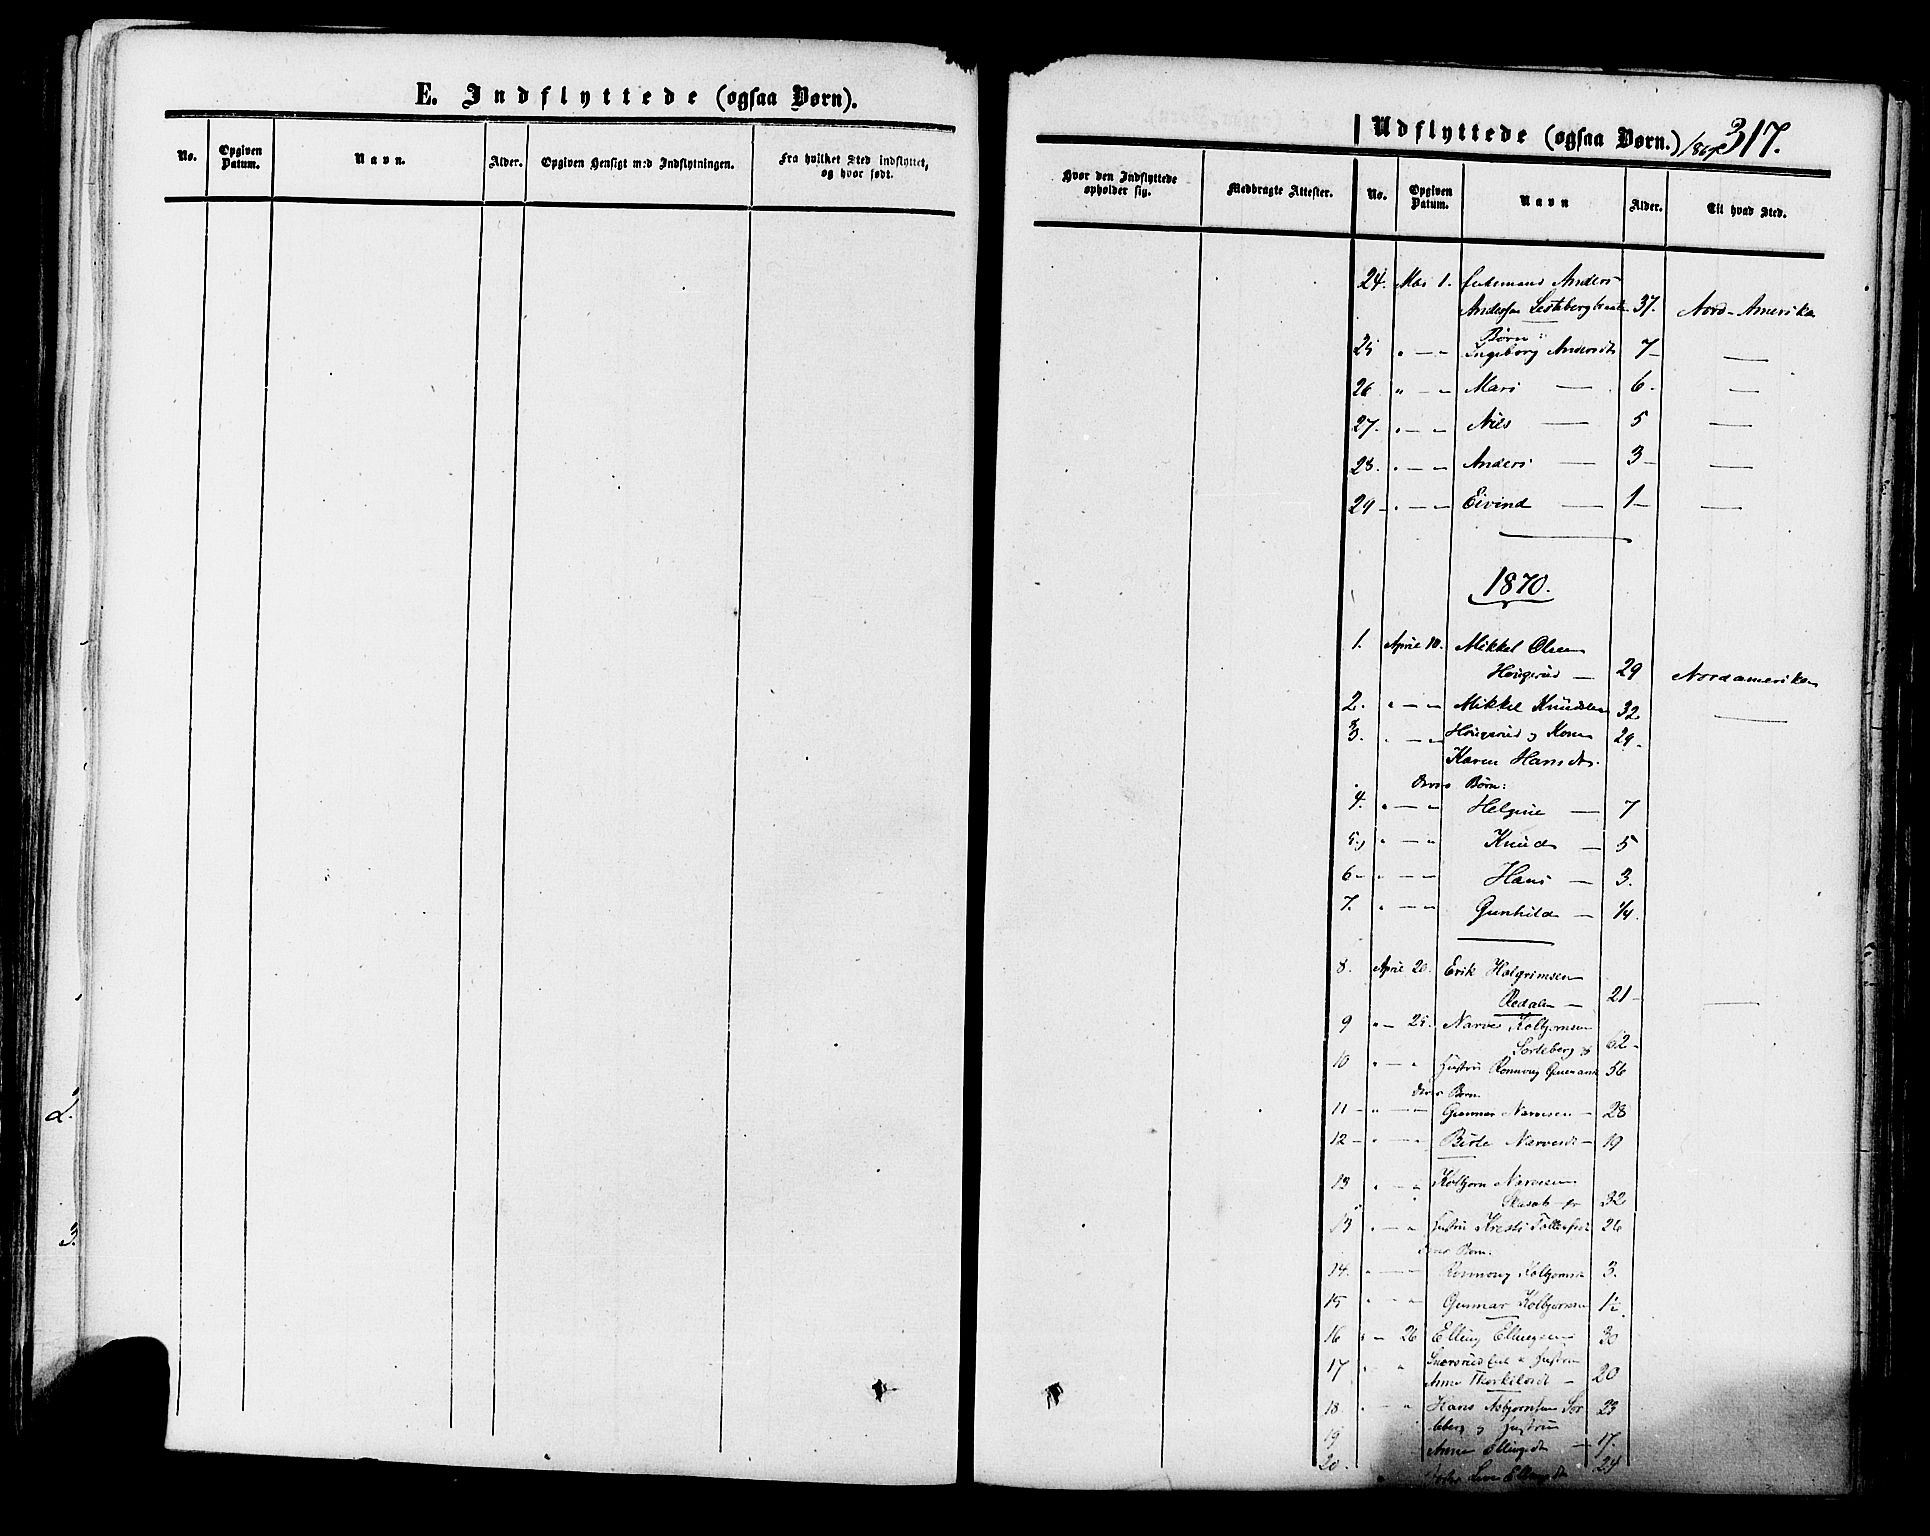 E. Indflyttede (ogsaa Børn).
No.
Opgiven Datum.
Navn.
Alder.
Opgiven Hensigt med Indflytningen.
Fra hvilket Sted indflyttet, og hvor født.
Udflyttede (ogsaa Børn.) 317.
Hvor den Indflyttede opholder sig.
Medbragte Attester.
No.
Opgiven Datum.
Navn
Alder.
Til hvad Sted.
24. Mai 1. Anders
Anderssen 37. Nord-Amerika
Børn:
25 " — " Ingeborg Andersdt 7 —
26 " — " Mari — 6 —
27. " — " Niels — 5 —
28. " — " Anders — 3 —
29 " — " Eivind — 1 —
1870.
1. April 10. Mikkel Olsen
Hougerud — 29 Nordamerika
2. " — " Mikkel Knudsen 32 —
3. " — " Hougerud og Kone 29.
Karen Hansdt.
deres Børn:
4. " — " Helgine — 7
5. " — " Knud — 5
6 " — " Hans — 3.
7. " — " Gunhild — 1/4.
8. April 20. Erik Halgrimsen
Redalen — 21 —
9 " — 25. Narve Kolbjørnsen
Sorteberg og 62
10 " — " Hustru Rønnoug 56
deres Børn
11 " — " Gunnar Narvesen — 28
12 — " — " Birte Narvesdt — 19
13 " — " Kolbjørn Narvesen
32
13 " — " Hustru Kresti 26
deres Børn:
14. " — " Rønnoug Kolbjørnsdt 3.
15 " — " Gunnar Kolbjørnsen 1½
16 " — 26 Elling Ellingsen 30
17 " " Hustru
Anne Thorkildsdt — 20
18. " — " Hans Asbjørnsen Sor 23
teberg og Hustru
19 Anne Ellingsdt — 17.
20. Ellingsdt 24
2.
3.